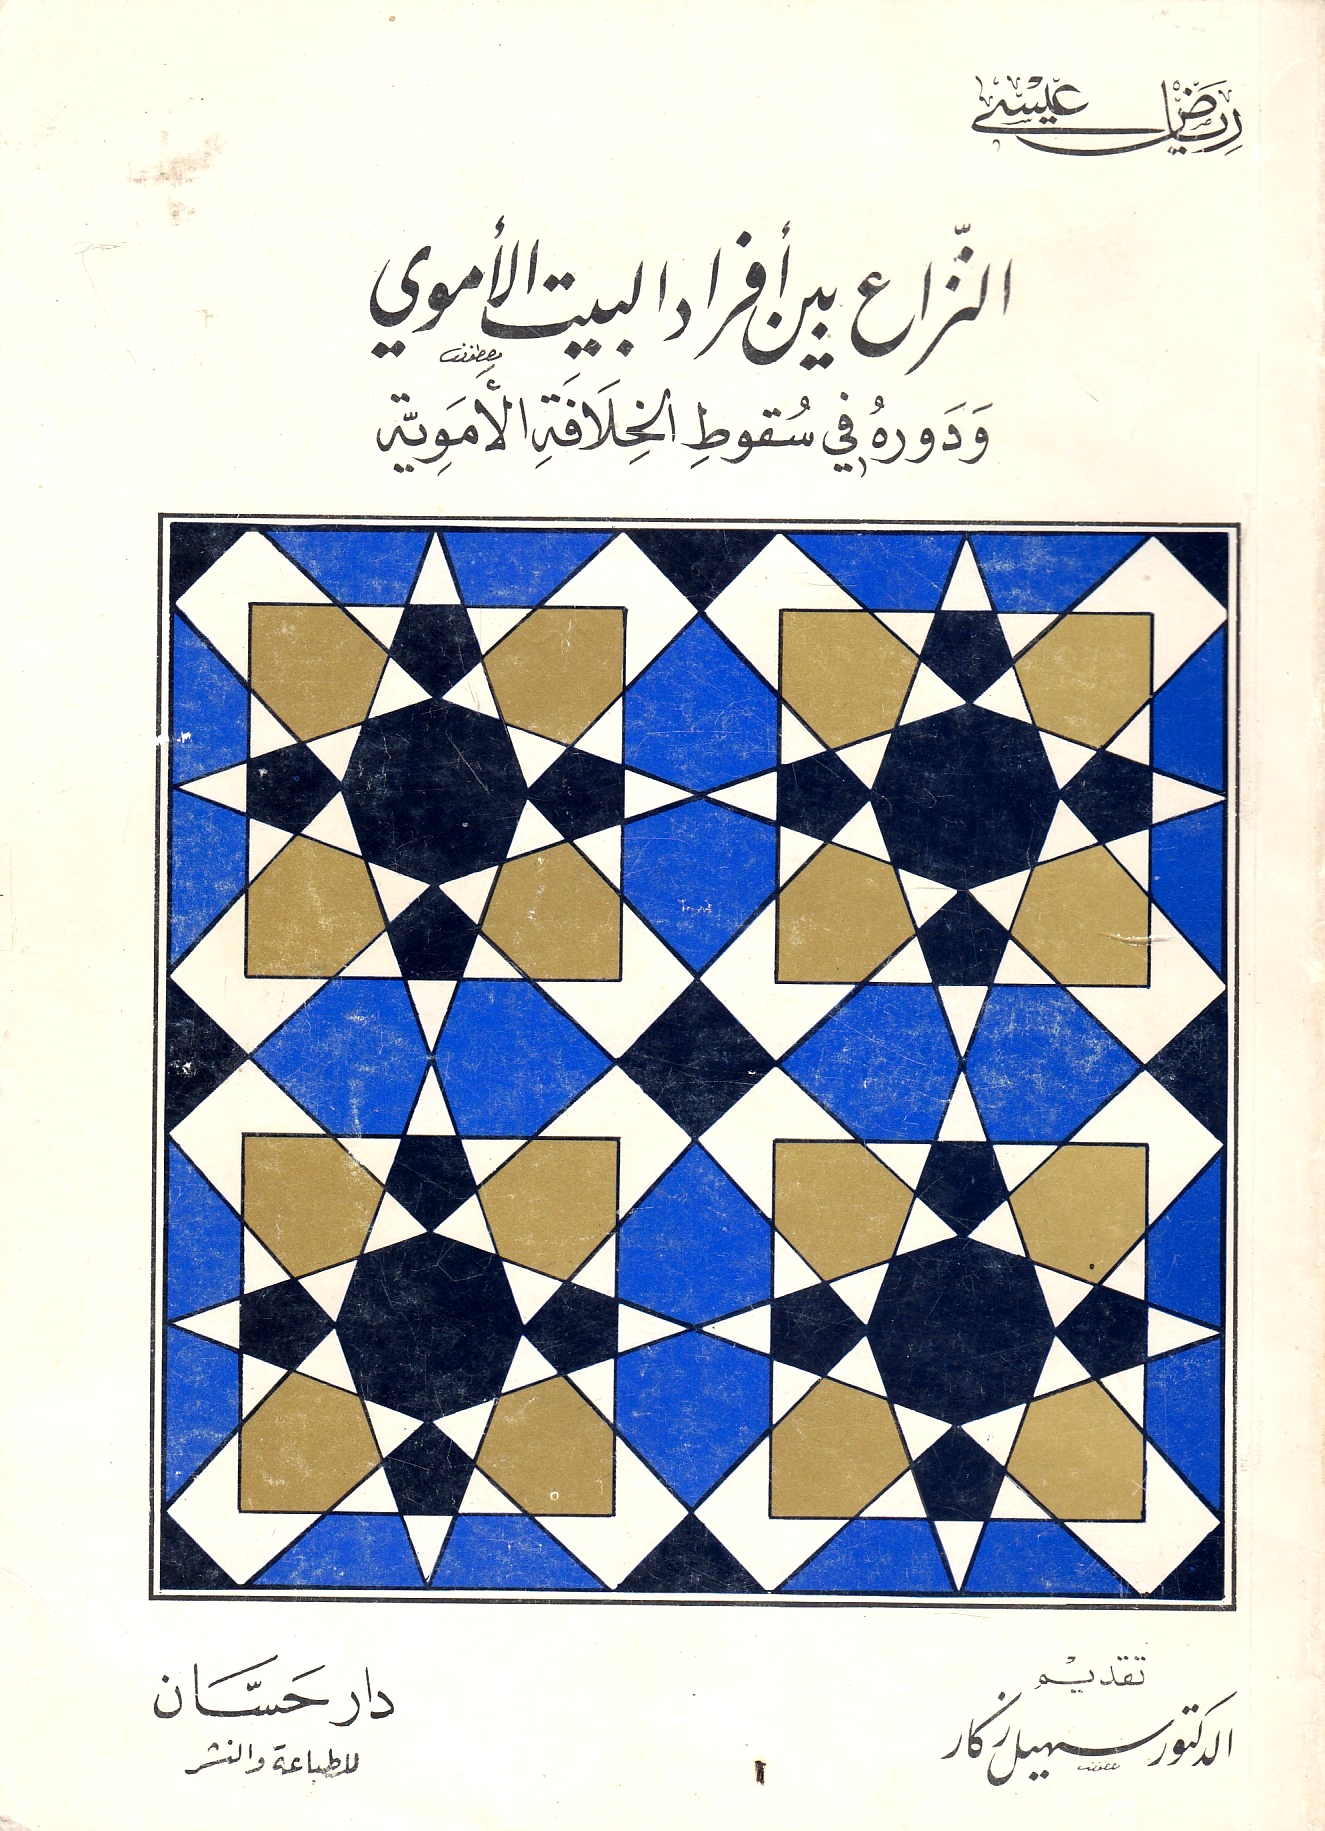 رياض عيسى
النّزاع بين أفراد البيت الأموي
وَدَورهُ في سُقوطِ الخِلَافَةِ الأمَوِيّة
تقديم
الدكتور سهيل زكار
دار حَسَّان
للطباعة والنشر